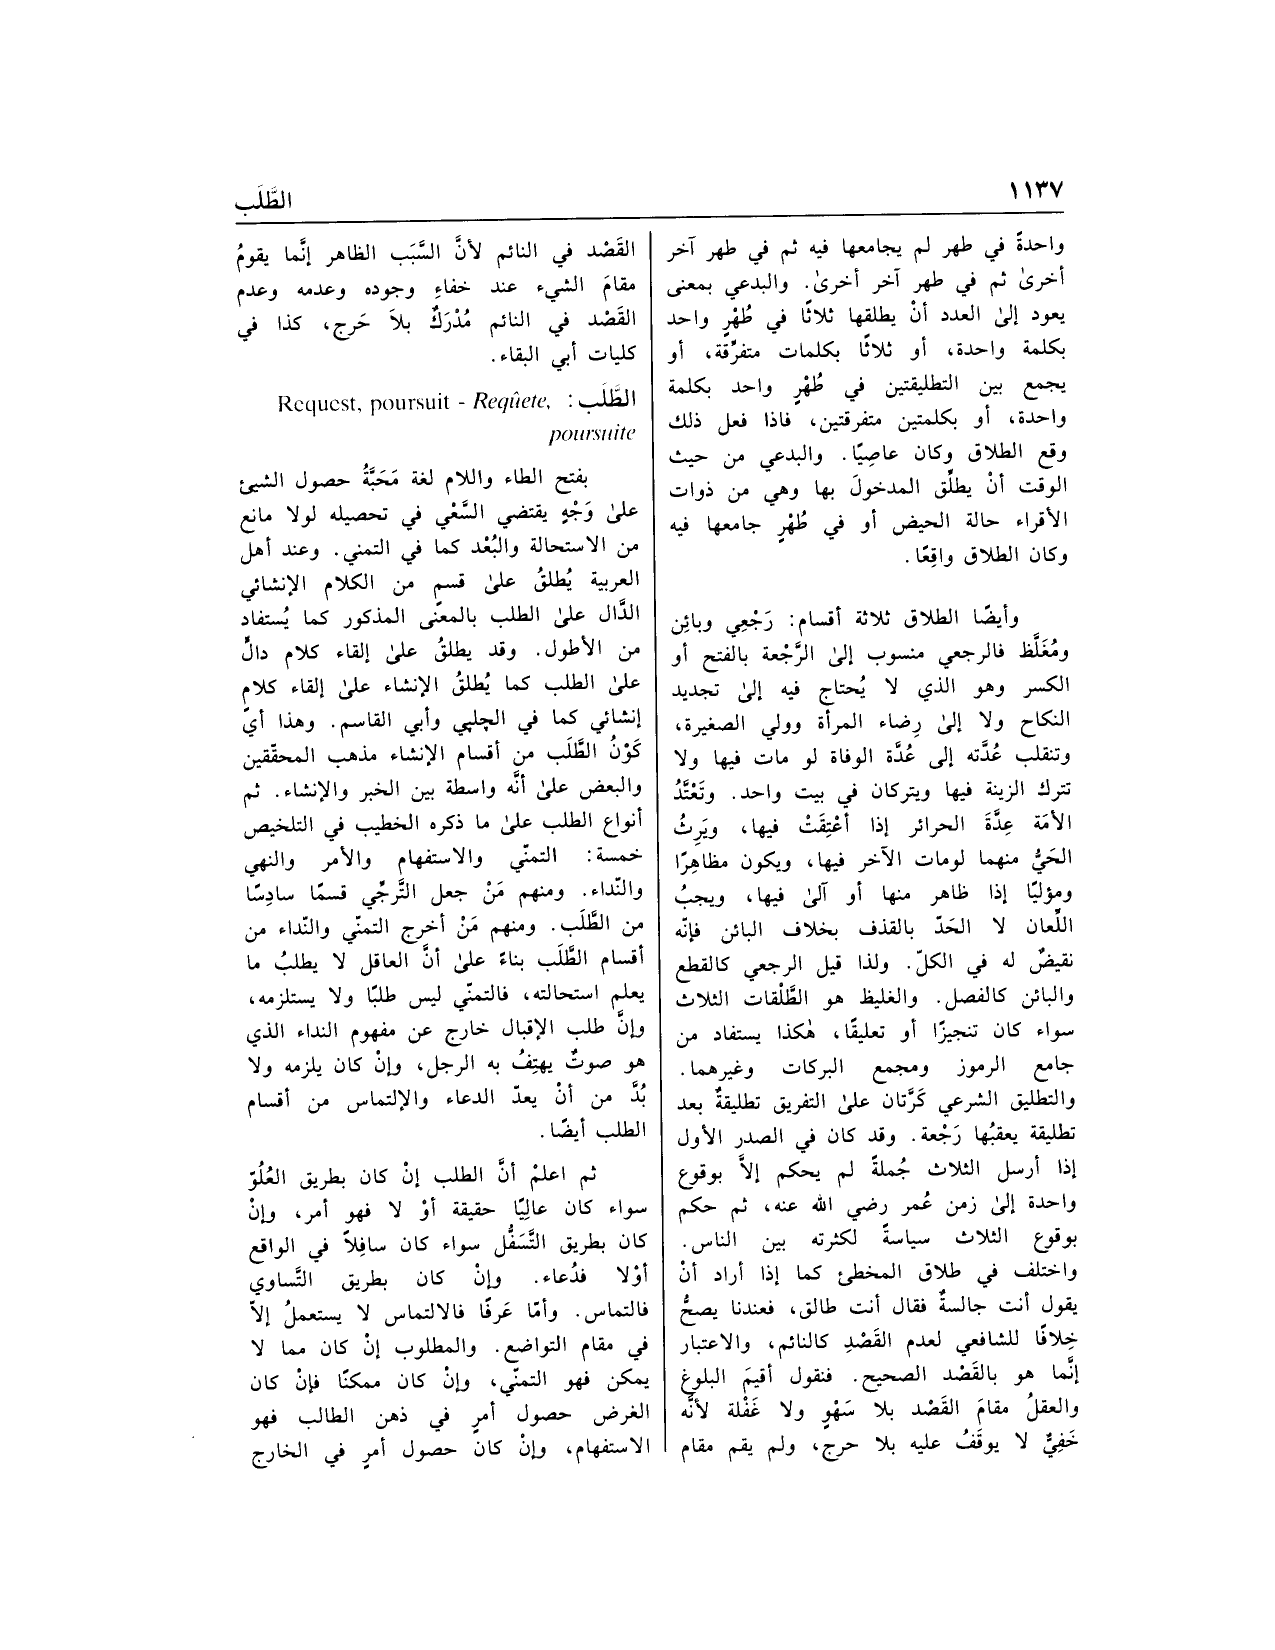 ١١٣٧
الطَّلَب
واحدةً في طهر لم يجامعها فيه ثم في طهر آخر
أخرىٰ ثم في طهر آخر أخرىٰ. والبدعي بمعنى
يعود إلىٰ العدد أنْ يطلقها ثلاثًا في طُهْرٍ واحد
بكلمة واحدة، أو ثلاثًا بكلمات متفرِّقة، أو
يجمع بين التطليقتين في طُهْرٍ واحد بكلمة
واحدة، أو بكلمتين متفرقتين، فاذا فعل ذلك
وقع الطلاق وكان عاصِيًا. والبدعي من حيث
الوقت أنْ يطلِّق المدخولَ بها وهي من ذوات
الأقراء حالة الحيض أو في طُهْرٍ جامعها فيه
وكان الطلاق واقِعًا.
وأيضًا الطلاق ثلاثة أقسام: رَجْعِي وبائِن
ومُغَلَّظ فالرجعي منسوب إلىٰ الرَّجْعة بالفتح أو
الكسر وهو الذي لا يُحتاج فيه إلىٰ تجديد
النكاح ولا إلىٰ رِضاء المرأة وولي الصغيرة،
وتنقلب عُدَّته إلى عُدَّة الوفاة لو مات فيها ولا
تترك الزينة فيها ويتركان في بيت واحد. وتَعْتَدُّ
الأمَة عِدَّةَ الحرائر إذا أعْتِقَتْ فيها، ويَرِثُ
الحَيُّ منهما لومات الآخر فيها، ويكون مظاهِرًا
ومؤليًا إذا ظاهر منها أو آلىٰ فيها، ويجبُ
اللِّعان لا الحَدّ بالقذف بخلاف البائن فإنّه
نقيضٌ له في الكلّ. ولذا قيل الرجعي كالقطع
والبائن كالفصل. والغليظ هو الطَّلْقات الثلاث
سواء كان تنجيزًا أو تعليقًا، هٰكذا يستفاد من
جامع الرموز ومجمع البركات وغيرهما.
والتطليق الشرعي كَرَّتان علىٰ التفريق تطليقةٌ بعد
تطليقة يعقبُها رَجْعة. وقد كان في الصدر الأول
إذا أرسل الثلاث جُملةً لم يحكم إلاَّ بوقوع
واحدة إلىٰ زمن عُمر رضي الله عنه، ثم حكم
بوقوع الثلاث سياسةً لكثرته بين الناس.
واختلف في طلاق المخطئ كما إذا أراد أنْ
يقول أنت جالسةٌ فقال أنت طالق، فعندنا يصحُّ
خِلافًا للشافعي لعدم القَصْدِ كالنائم، والاعتبار
إنَّما هو بالقَصْد الصحيح. فنقول أقيمَ البلوغ
والعقلُ مقامَ القَصْد بلا سَهْوٍ ولا غَفْلة لأنَّه
خَفِيٌّ لا يوقَفُ عليه بلا حرج، ولم يقم مقام
القَصْد في النائم لأنَّ السَّبَب الظاهر إنَّما يقومُ
مقامَ الشيء عند خفاءِ وجوده وعدمه وعدم
القَصْد في النائم مُدْرَكٌ بلاَ حَرج، كذا في
كليات أبي البقاء.
الطَّلَب: Request, poursuit - Reqûete,
poursuite
بفتح الطاء واللام لغة مَحَبَّةُ حصول الشيئ
علىٰ وَجْهٍ يقتضي السَّعْي في تحصيله لولا مانع
من الاستحالة والبُعْد كما في التمني. وعند أهل
العربية يُطلقُ علىٰ قسم من الكلام الإنشائي
الدَّال علىٰ الطلب بالمعنى المذكور كما يُستفاد
من الأطول. وقد يطلقُ علىٰ إلقاء كلام دالٍّ
علىٰ الطلب كما يُطلقُ الإنشاء علىٰ إلقاء كلامٍ
إنشائي كما في الچلپي وأبي القاسم. وهذا أيْ
كَوْنُ الطَّلَب من أقسام الإنشاء مذهب المحقّقين
والبعض علىٰ أنَّه واسطة بين الخبر والإنشاء. ثم
أنواع الطلب علىٰ ما ذكره الخطيب في التلخيص
خمسة: التمنّي والاستفهام والأمر والنهي
والنّداء. ومنهم مَنْ جعل التَّرجّي قسمًا سادِسًا
من الطَّلَب. ومنهم مَنْ أخرج التمنّي والنّداء من
أقسام الطَّلَب بناءً علىٰ أنَّ العاقل لا يطلبُ ما
يعلم استحالته، فالتمنّي ليس طلبًا ولا يستلزمه،
وإنَّ طلب الإقبال خارج عن مفهوم النداء الذي
هو صوتٌ يهتِفُ به الرجل، وإنْ كان يلزمه ولا
بُدَّ من أنْ يعدّ الدعاء والإلتماس من أقسام
الطلب أيضًا.
ثم اعلمْ أنَّ الطلب إنْ كان بطريق العُلُوّ
سواء كان عالِيًا حقيقة أوْ لا فهو أمر، وإنْ
كان بطريق التَّسَفُّل سواء كان سافِلاً في الواقع
أوْلا فدُعاء. وإنْ كان بطريق التَّساوي
فالتماس. وأمّا عَرفًا فالالتماس لا يستعملُ إلاّ
في مقام التواضع. والمطلوب إنْ كان مما لا
يمكن فهو التمنّي، وإنْ كان ممكنًا فإنْ كان
الغرض حصول أمرٍ في ذهن الطالب فهو
الاستفهام، وإنْ كان حصول أمرٍ في الخارج